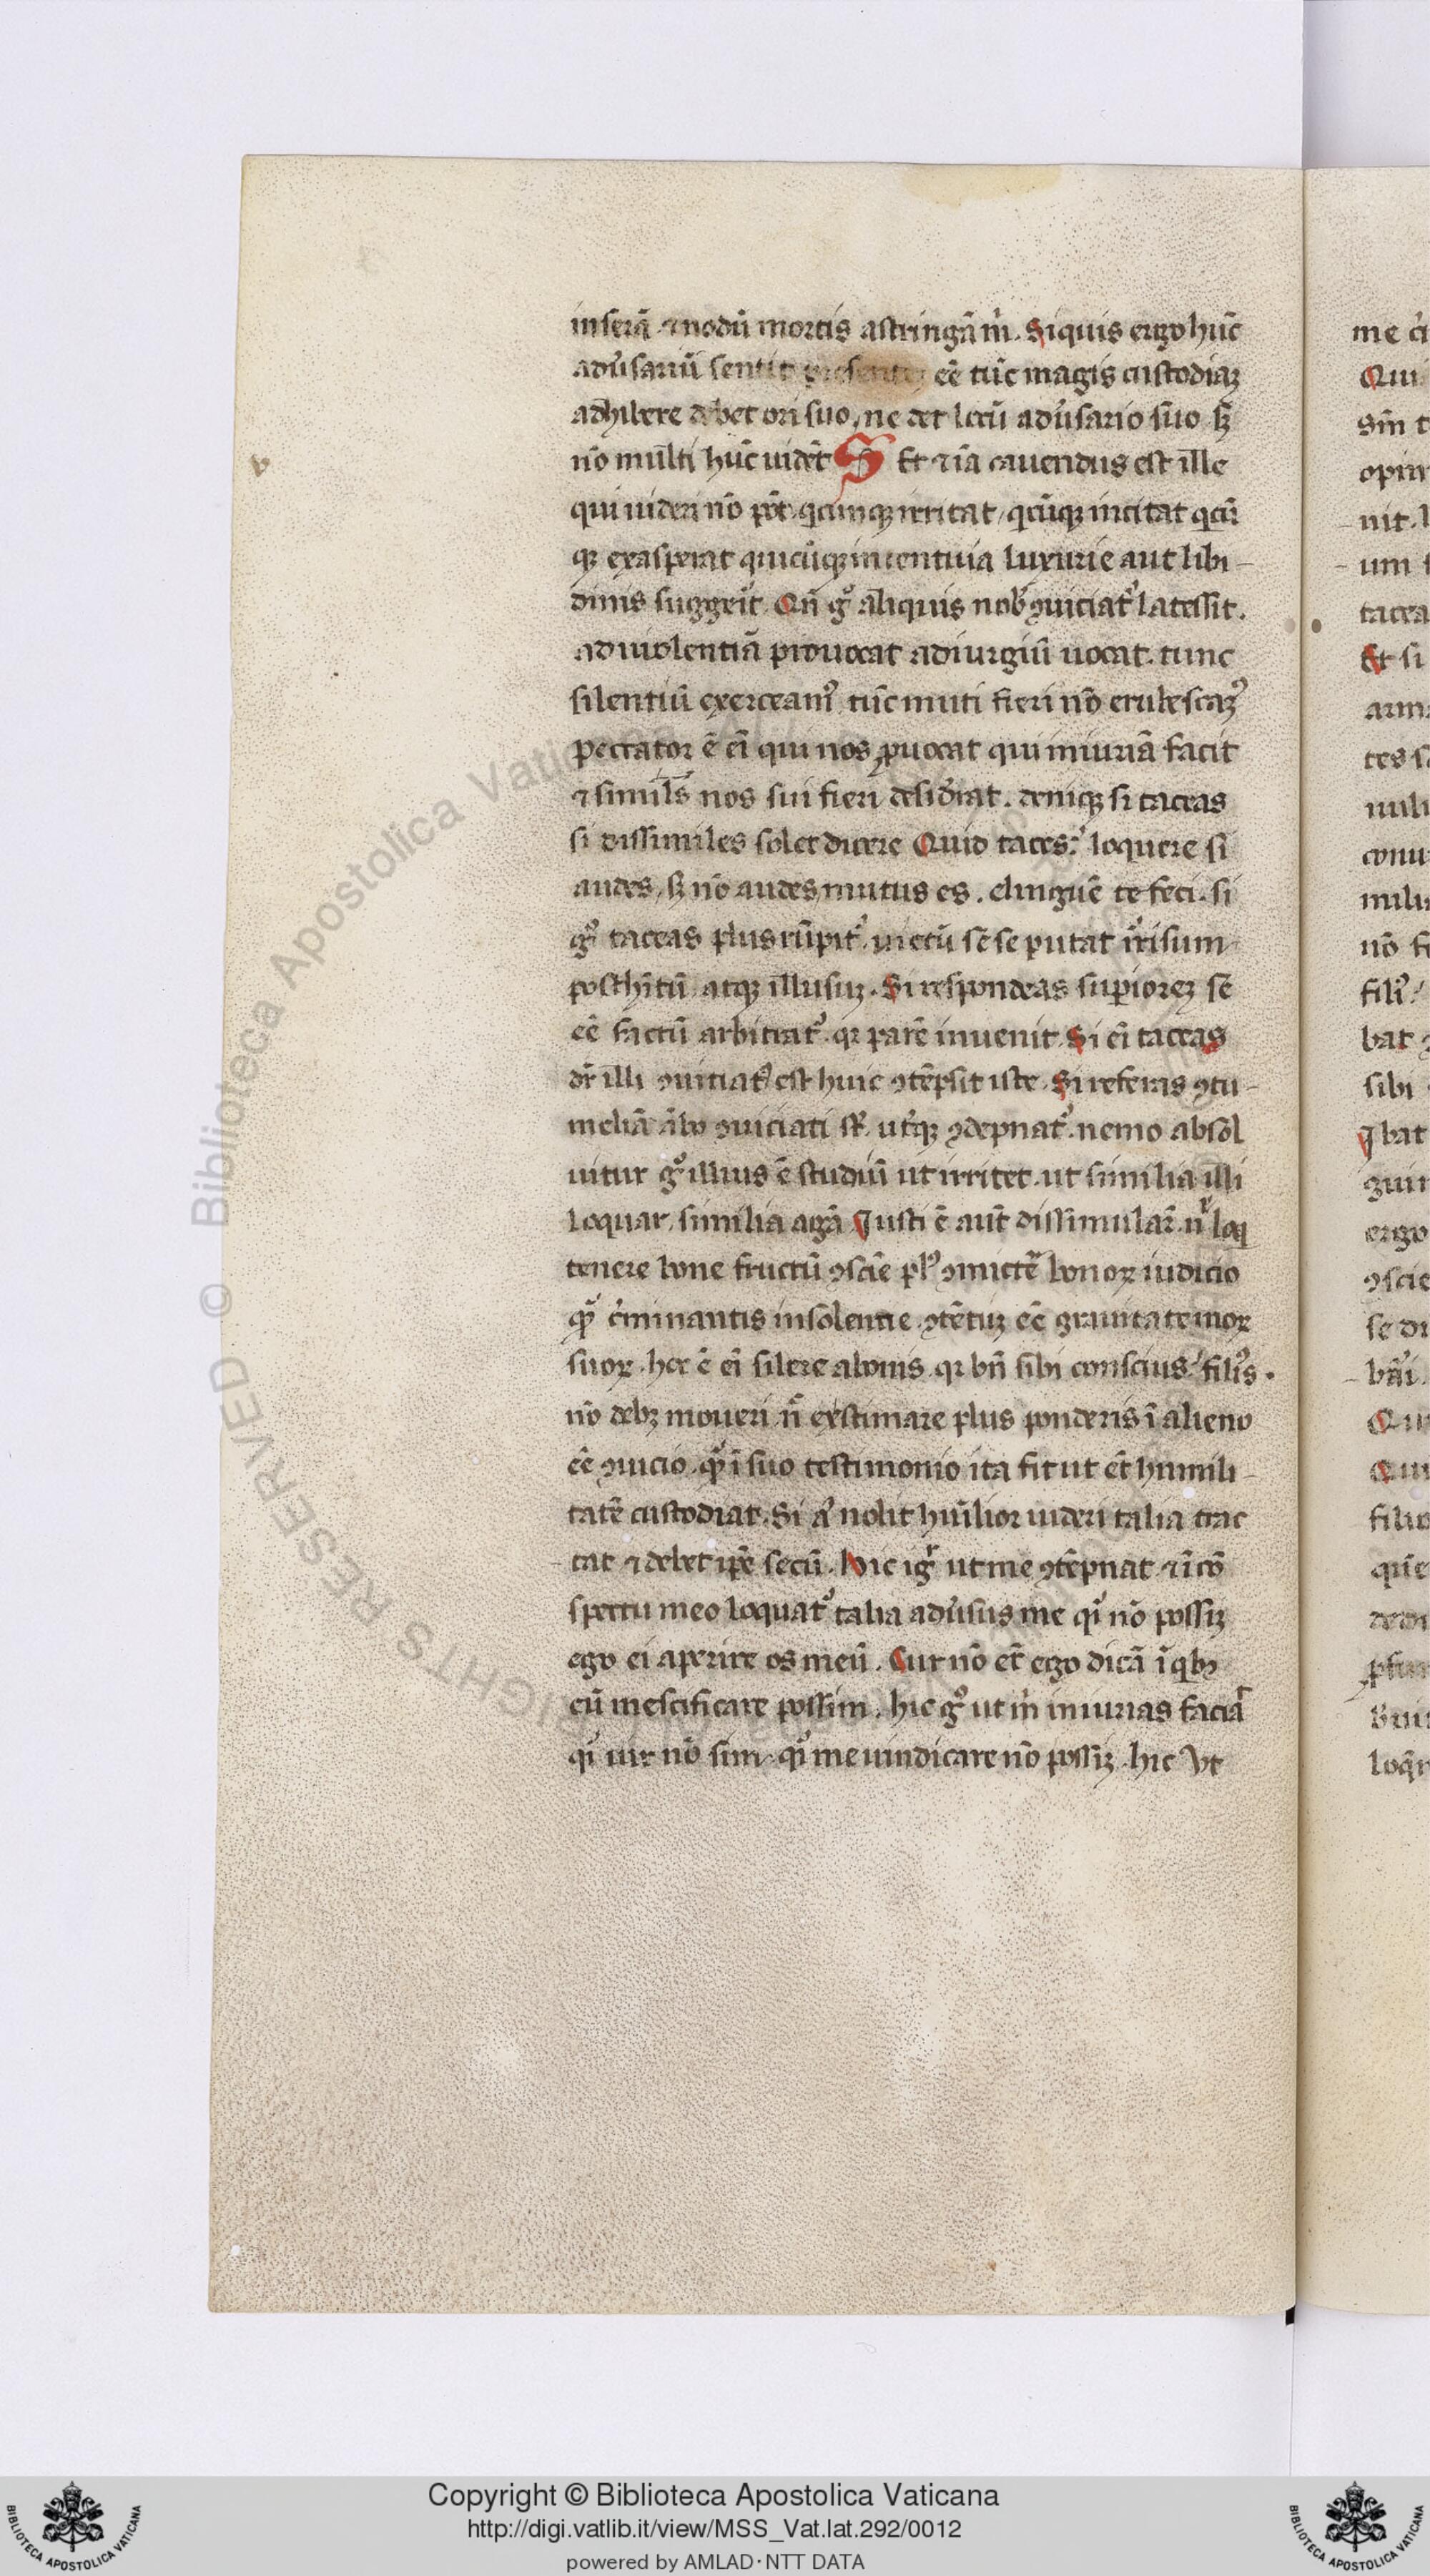 inserā ⁊ nodū mortis astringā m̄. Siquis ergo hūc
adu̾sariū sentit presente eē tūc magis custodiaꝫ
adhibere debet ori suo, ne det locū adu̾sario suo sꝫ
nō multi hūc uidēt S Et ⁊ iā cauendus est ille
qui uideri nō pōt. qcūnqꝫ irritat, qcūqꝫ incitat qcū
qꝫ exasperat quicūqꝫ incentiua luxurie aut libi-
dinis suggerit. Qn̄ gͦ aliquis nob̾ ꝯuiciat᷑ lacessit.
ad uiolentiā prouocat ad iurgiū uocat. tunc
silentiū exerceamꝰ tūc muti fieri nō erubescaꝫꝰ
peccator ē ei̅ qui nos ꝓuocat qui iniuriā facit
⁊ similes nos sui fieri desid̾rat. deniqꝫ si taceas
si dissimiles solet dicere Quid taces? loquere si
audes, sꝫ nō audes, mutus es. elinguē te feci. si
gͦ taceas plus rūpit᷑. uictū sē se putat irrisum
posthitū atqꝫ illusuꝫ. Si respondeas supiorēꝫ sē
eē factū arbitrat᷑. qꝛ parē inuenit. Si ei̅ taceas
dr̄ illi ꝯuitiatꝰ est huic ꝯtēpsit iste. Si referas ꝯtu-
meliā ābo ꝯuiciati st̄. ut̾qꝫ ꝯdepnat᷑. nemo absol
uitur gͦ illius ē studiū ut irritet. ut similia illi
loquar, similia agā Justi ē aut̄ dissimular̄. n̄ loq
tenere bone fructū ꝯsciē plꝰ ꝯmictē bonoꝝ iudicio
qꝫ c̾minantis insolentie. ꝯtētuꝫ eē grauitate moꝝ
suoꝝ. hec ē ei̅ silere a bonis. qꝛ bn̄ sibi conscius. filꝰs.
nō debꝫ moueri n̄ existimare plus ponderis ī alieno
eē ꝯuicio. qꝫ ī suo testimonio ita fit ut et̄ humili-
tatē custodiat. Si aͦ nolit hūilior uideri talia trac
tat ⁊ debet ipē secū. Hic igͬ ut me ꝯtēpnat ⁊ ī cō
spectu meo loquat᷑ talia adu̾sus me qͥ nō possiꝫ
ego ei aperire os meū. Cur nō et̄ ego dicā ī qbꝫ
eū mestificare possim. hic gͦ ut m̄ iniurias faciāt
qͥ uir nō sim. qͥ me uindicare nō possiꝫ. hic Vt
v
me
Qui
opin
nit.
um
tacea
Et si
tes
nō
filiꝰ
bat
sibi
Ibat
ergo
ꝯscie
Copyright © Biblioteca Apostolica Vaticana
http://digi.vatlib.it/view/MSS_Vat.lat.292/0012
powered by AMLAD·NTT DATA
BIBLIOTECA APOSTOLICA VATICANA
BIBLIOTECA APOSTOLICA VATICANA